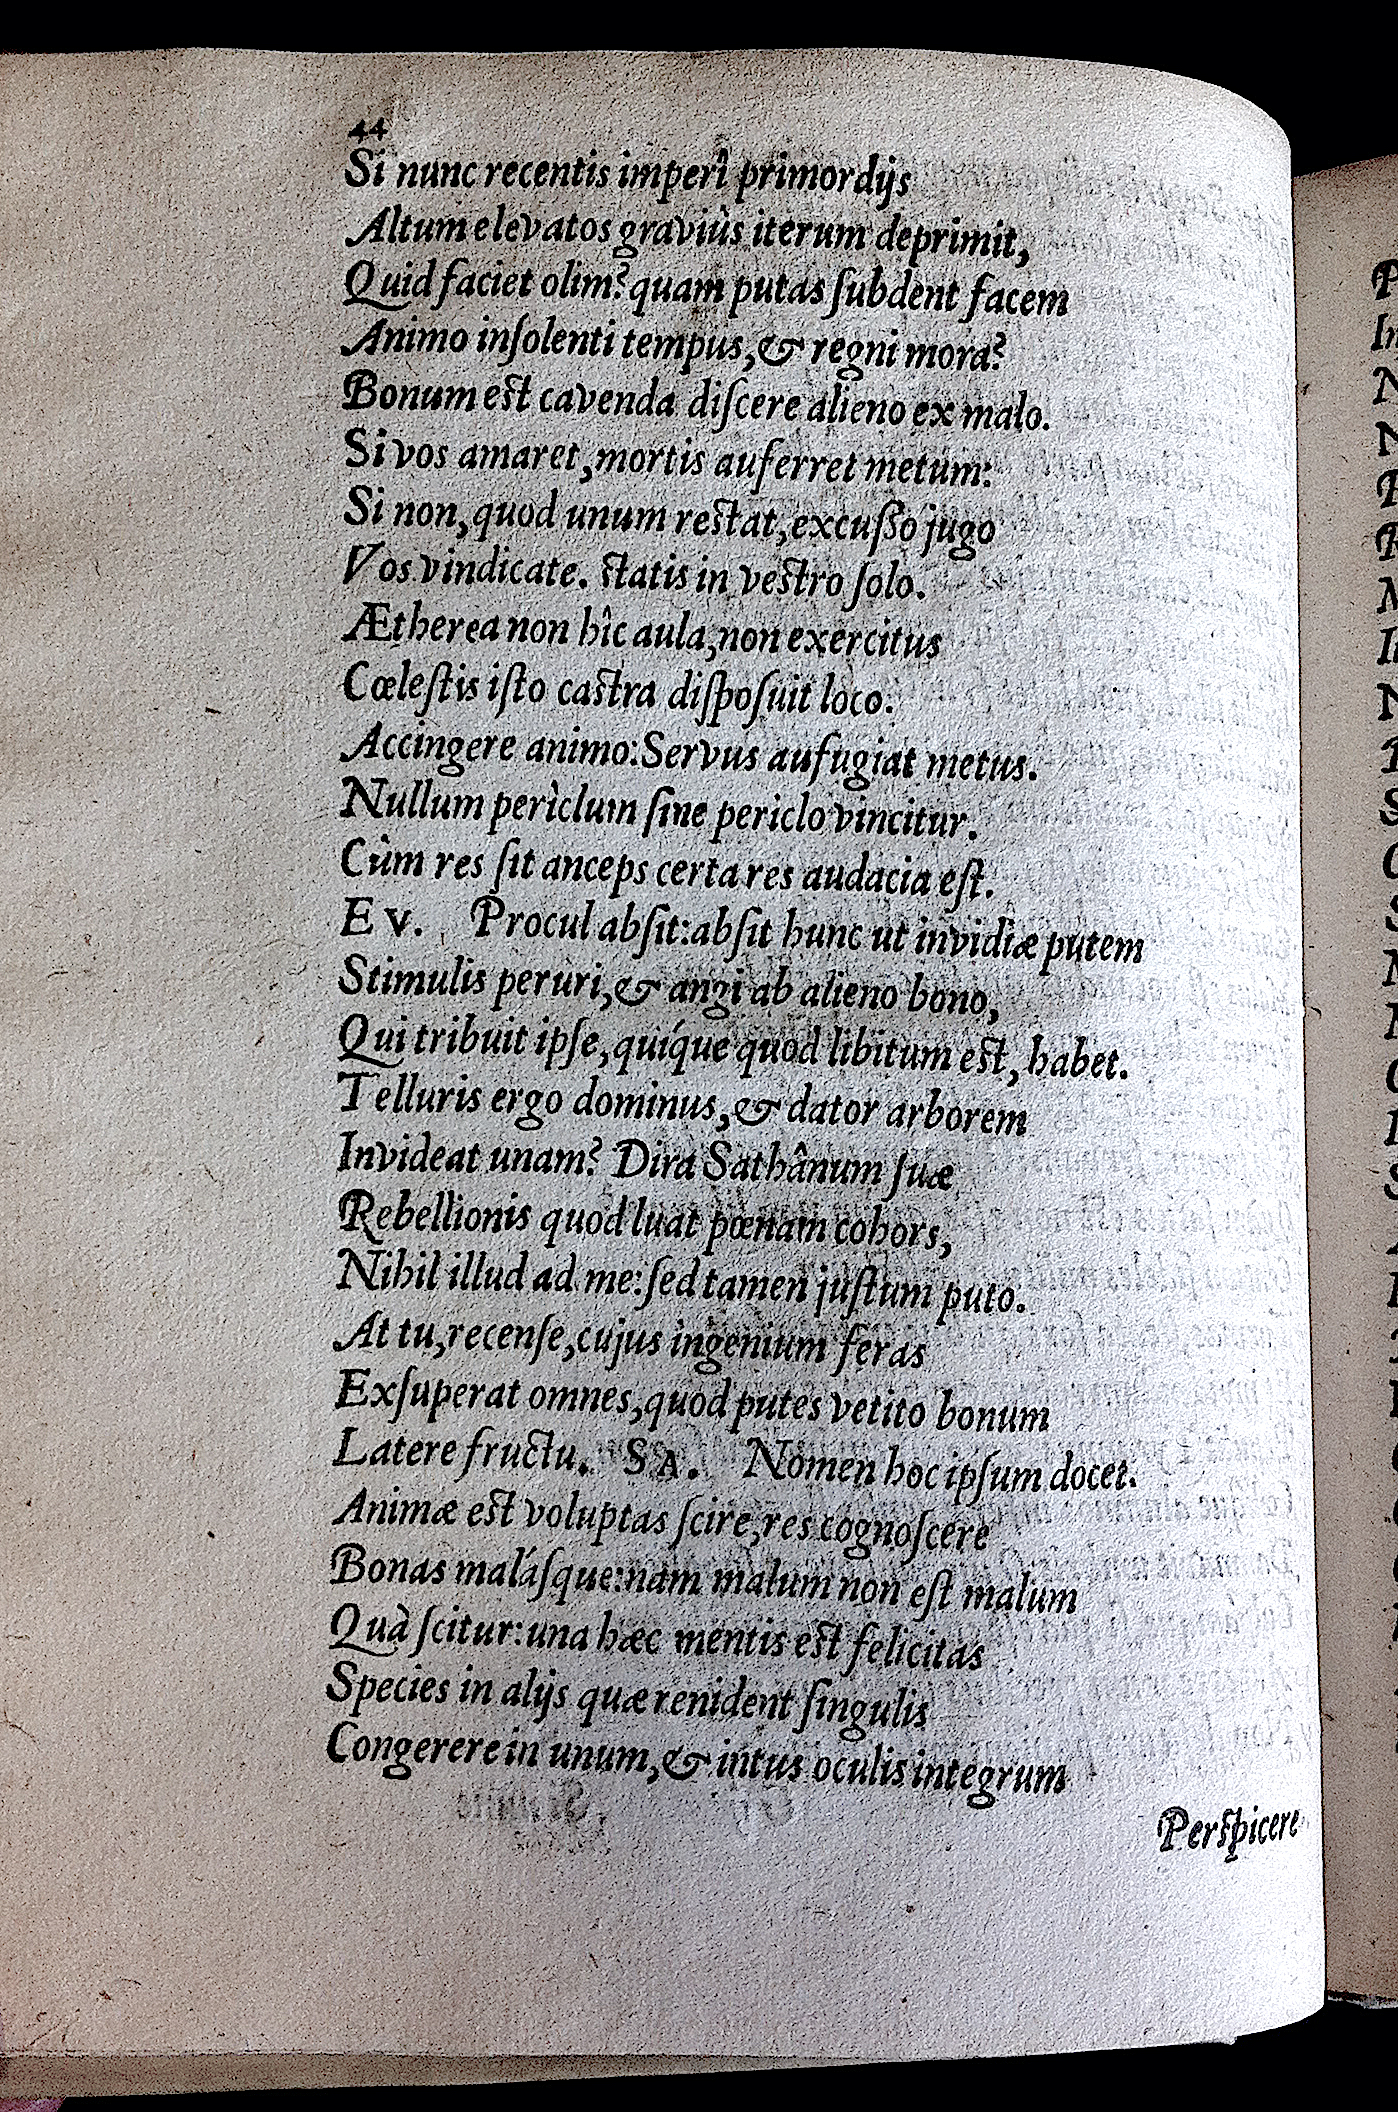 44
Si nunc recentis imperî primordijs
Altum elevatos graviùs iterum deprimit,
Quid faciet olim? quam putas ſubdent facem
Animo inſolenti tempus, & regni mora?
Bonum est cavenda diſcere alieno ex malo.
Si vos amaret, mortis auferret metum:
Si non, quod unum restat, excuſſo jugo
Vos vindicate. statis in vestro ſolo.
Ætherea non hîc aula, non exercitus
Cœleſtis iſto castra diſpoſuit loco.
Accingere animo: Servus aufugiat metus.
Nullum perìclum ſine periclo vincitur.
Cùm res ſit anceps certa res audacia eſt.
Ev. Procul abſit: abſit hunc ut invidiæ putem
Stimulis peruri, & angi ab alieno bono,
Qui tribuit ipſe, quíque quod libitum est, habet.
Telluris ergo dominus, & dator arborem
Invideat unam? Dira Sathânum ſuæ
Rebellionis quod luat pœnam cohors,
Nihil illud ad me: ſed tamen juſtum puto.
At tu, recenſe, cujus ingenium feras
Exſuperat omnes, quod putes vetito bonum
Latere fructu. SA. Nomen hoc ipſum docet.
Animæ est voluptas ſcire, res cognoſcere
Bonas maláſque: nam malum non eſt malum
Quà ſcitur: una hæc mentis est felicitas
Species in alijs quæ renident ſingulis
Congerere in unum, & intus oculis integrum
Perspicere